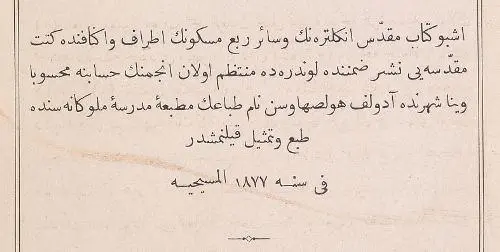 اشبو كتاب مقدّس انكلتره‌نك وسائر ربع مسكونك اطراف واكنافنده كتت
مقدّسه‌يى نشر ضمننده لوندره‌ده منتظم اولان انجمنك حسابنه محسوبا
وينا شهرنده آدولف هولصهاوسن نام طباعك مطبعهٔ مدرسهٔ ملوكانه سنده
طبع وتمثيل قيلنمشدر
فى سنه ١٨٧٧ المسيحيه